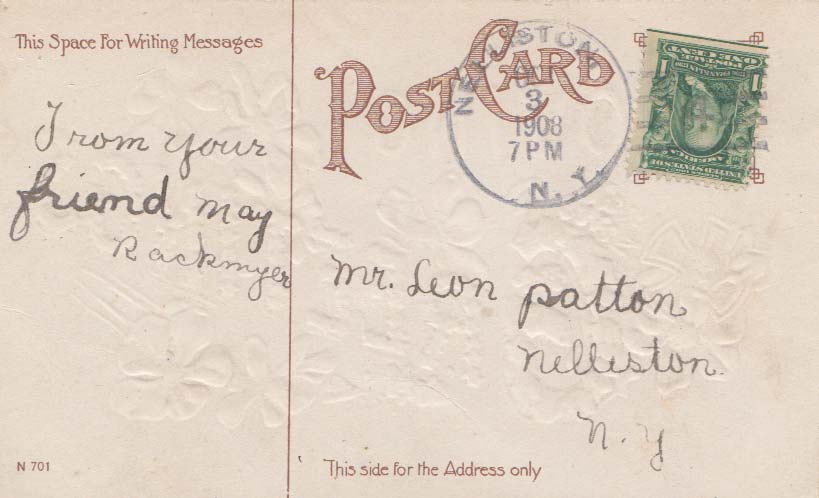 This Space For Writing Messages
POST CARD
NELLISTON
3
1908
7 PM
N. Y.
From your
friend May
Rackmyer
Mr. Leon Patton
Nelliston
N. Y
N 701
This side for the Address only